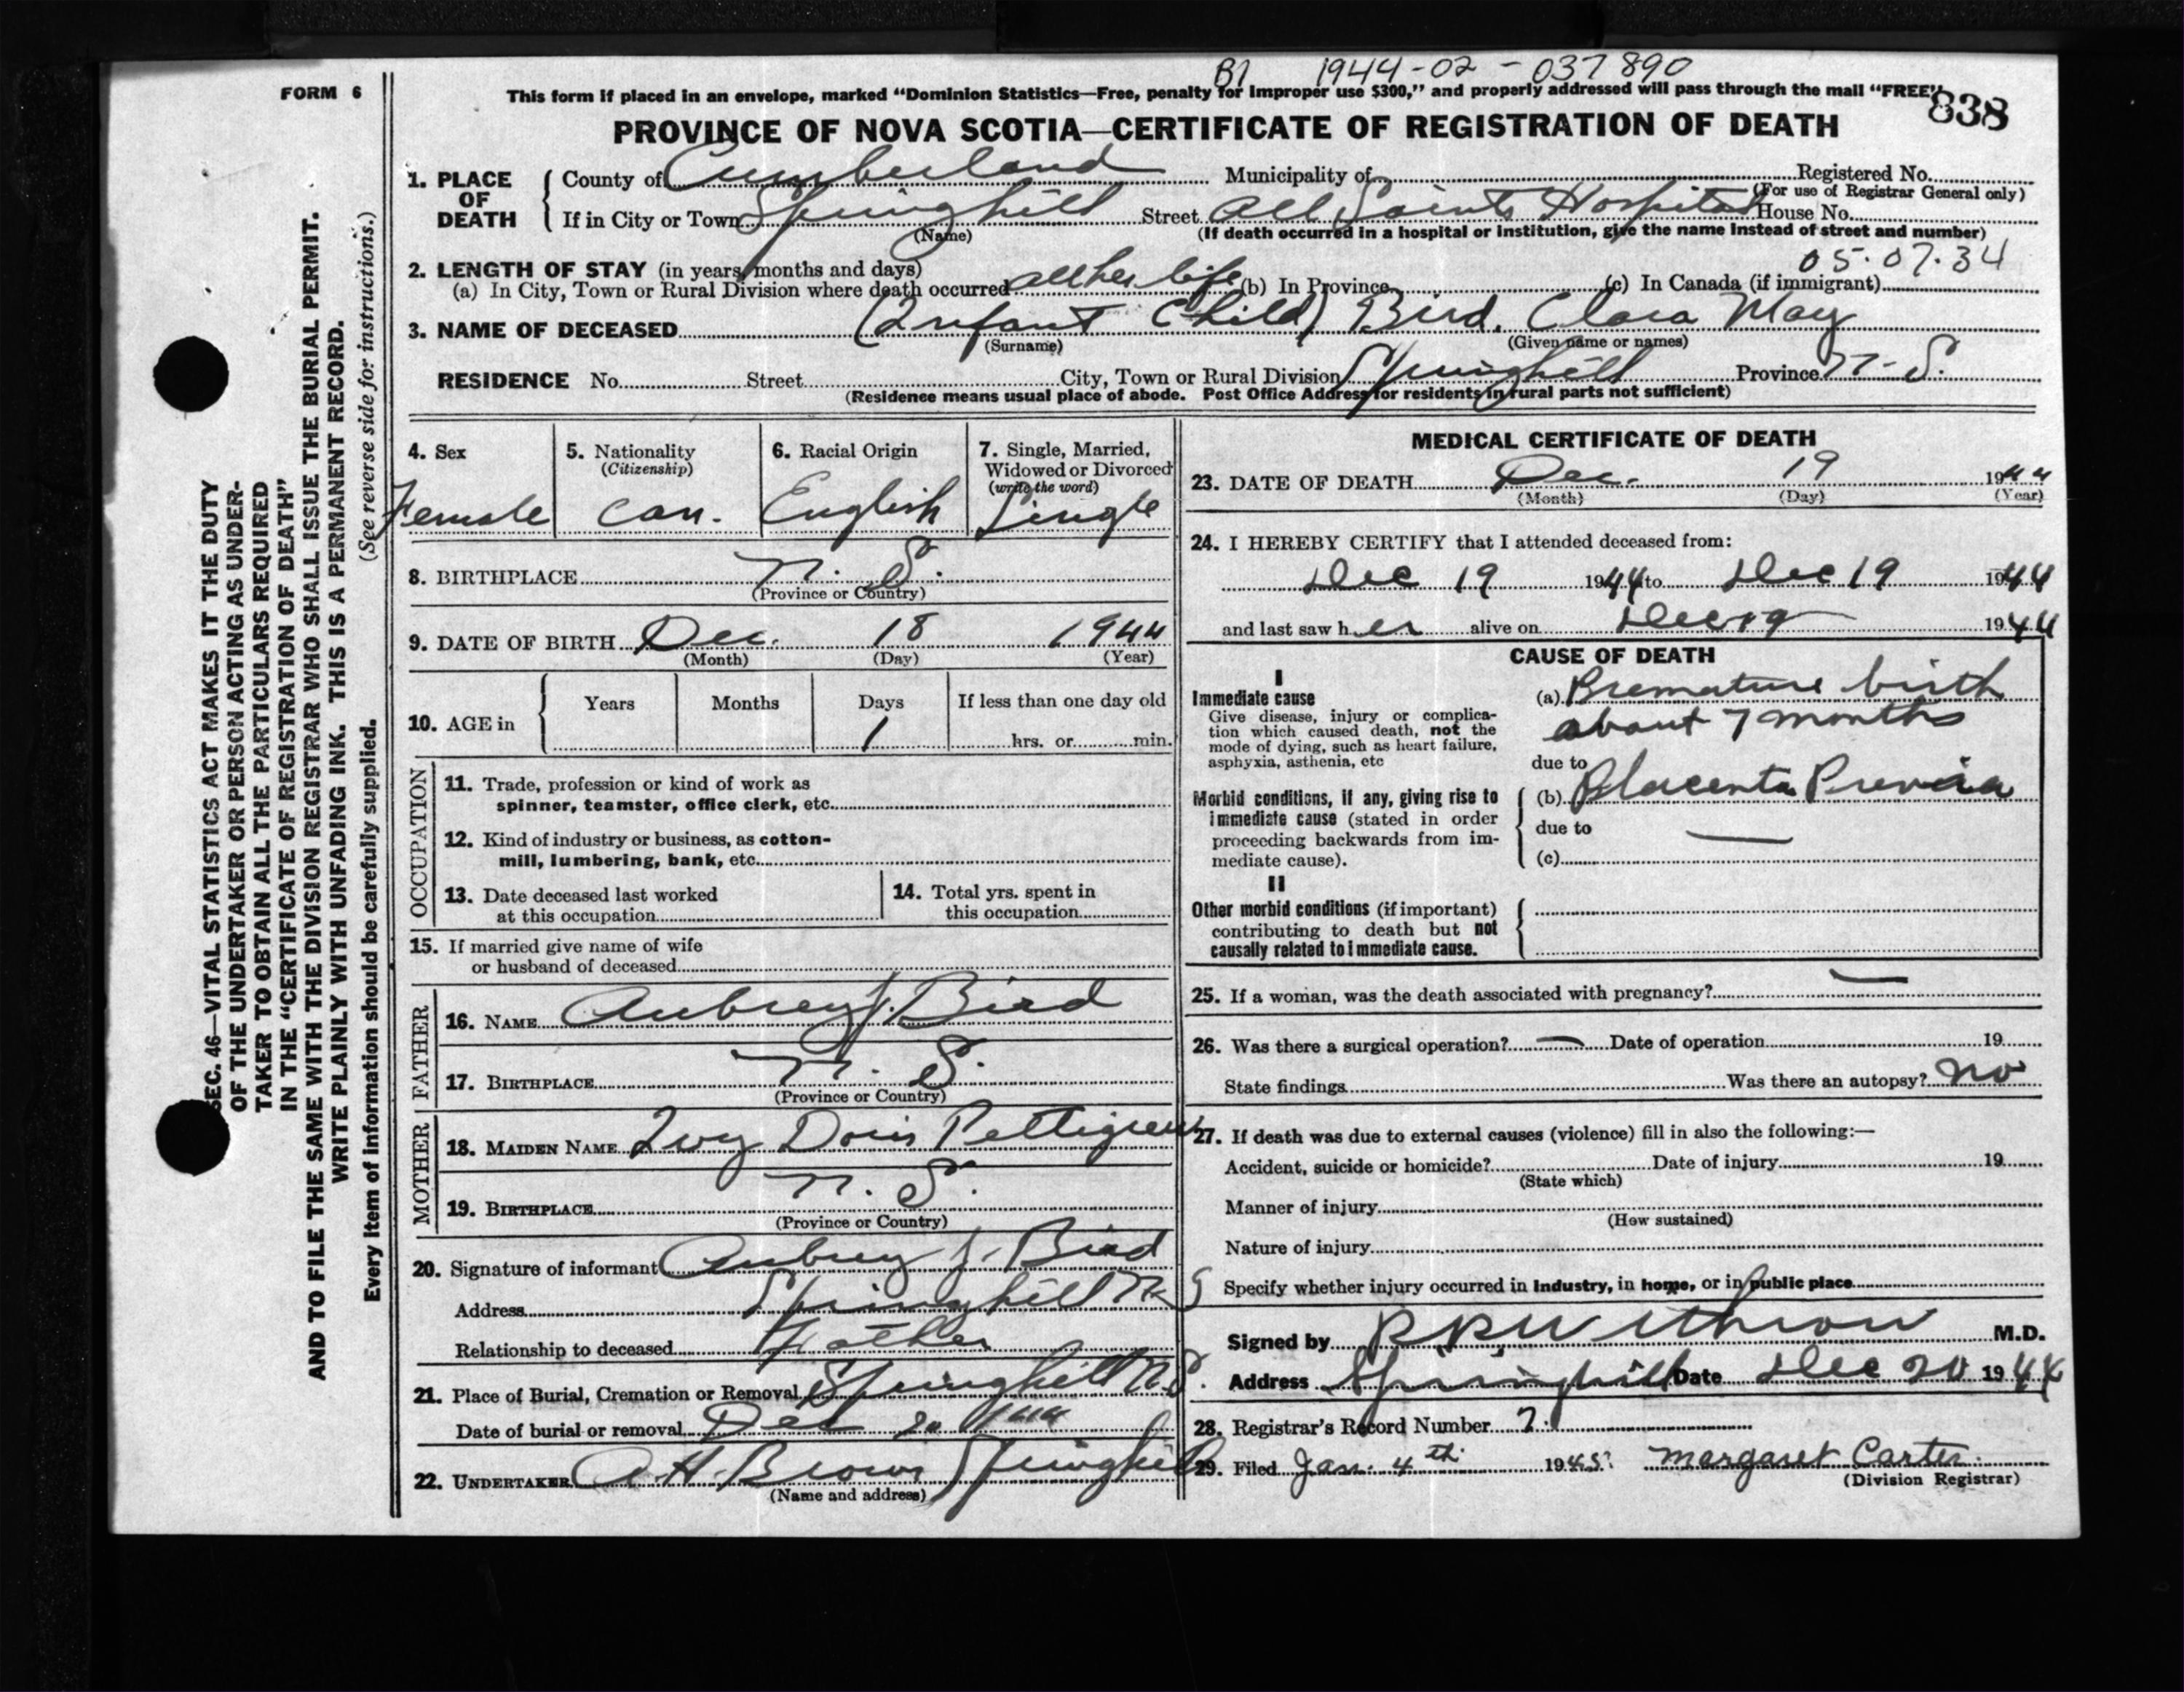 B1 1944-02-037890
FORM 6
This form if placed in an envelope, marked "Dominion Statistics—Free, penalty for improper use $300," and properly addressed will pass through the mail "FREE"
838
PROVINCE OF NOVA SCOTIA—CERTIFICATE OF REGISTRATION OF DEATH
1. PLACE OF DEATH
County of Cumberland Municipality of Registered No.
(For use of Registrar General only)
If in City or Town Springhill Street All Saints Hospital House No.
(Name) (If death occurred in a hospital or institution, give the name instead of street and number)
05.07.34
2. LENGTH OF STAY (in years, months and days)
(a) In City, Town or Rural Division where death occurred all her life (b) In Province (c) In Canada (if immigrant)
3. NAME OF DECEASED (Infant Child) Bird, Clara May
(Surname) (Given name or names)
RESIDENCE No. Street City, Town or Rural Division Springhill Province N.S.
(Residence means usual place of abode. Post Office Address for residents in rural parts not sufficient)
4. Sex
Female
5. Nationality
(Citizenship)
Can.
6. Racial Origin
English
7. Single, Married,
Widowed or Divorced
(write the word)
Single
8. BIRTHPLACE N. S.
(Province or Country)
9. DATE OF BIRTH Dec. 18 1944
(Month) (Day) (Year)
10. AGE in
Years Months Days If less than one day old
1 hrs. or min.
OCCUPATION
11. Trade, profession or kind of work as
spinner, teamster, office clerk, etc.
12. Kind of industry or business, as cotton-
mill, lumbering, bank, etc.
13. Date deceased last worked
at this occupation
14. Total yrs. spent in
this occupation
15. If married give name of wife
or husband of deceased
FATHER
16. NAME Aubrey J. Bird
17. BIRTHPLACE N. S.
(Province or Country)
MOTHER
18. MAIDEN NAME Ivy Doris Pettigrew
19. BIRTHPLACE N. S.
(Province or Country)
20. Signature of informant Aubrey J. Bird
Address Springhill N S
Relationship to deceased Father
21. Place of Burial, Cremation or Removal Springhill N.S.
Date of burial or removal Dec 20 1944
22. UNDERTAKER A.H. Brown Springhill
(Name and address)
MEDICAL CERTIFICATE OF DEATH
23. DATE OF DEATH Dec. 19 1944
(Month) (Day) (Year)
24. I HEREBY CERTIFY that I attended deceased from:
Dec 19 1944 to Dec 19 1944
and last saw her alive on Dec 19 1944
CAUSE OF DEATH
I
Immediate cause
Give disease, injury or complica-
tion which caused death, not the
mode of dying, such as heart failure,
asphyxia, asthenia, etc
(a) Premature birth
about 7 months
due to
Morbid conditions, if any, giving rise to
immediate cause (stated in order
proceeding backwards from im-
mediate cause).
(b) Placenta Previa
due to —
(c)
II
Other morbid conditions (if important)
contributing to death but not
causally related to immediate cause.
25. If a woman, was the death associated with pregnancy? —
26. Was there a surgical operation? — Date of operation 19
State findings Was there an autopsy? No
27. If death was due to external causes (violence) fill in also the following:—
Accident, suicide or homicide? Date of injury 19
(State which)
Manner of injury
(How sustained)
Nature of injury
Specify whether injury occurred in industry, in home, or in public place
Signed by R R Withrow M.D.
Address Springhill Date Dec 20 1944
28. Registrar's Record Number 7.
29. Filed Jan. 4th 1945. Margaret Carter.
(Division Registrar)
SEC. 46—VITAL STATISTICS ACT MAKES IT THE DUTY
OF THE UNDERTAKER OR PERSON ACTING AS UNDER-
TAKER TO OBTAIN ALL THE PARTICULARS REQUIRED
IN THE "CERTIFICATE OF REGISTRATION OF DEATH"
AND TO FILE THE SAME WITH THE DIVISION REGISTRAR WHO SHALL ISSUE THE BURIAL PERMIT.
WRITE PLAINLY WITH UNFADING INK. THIS IS A PERMANENT RECORD.
Every item of information should be carefully supplied. (See reverse side for instructions.)